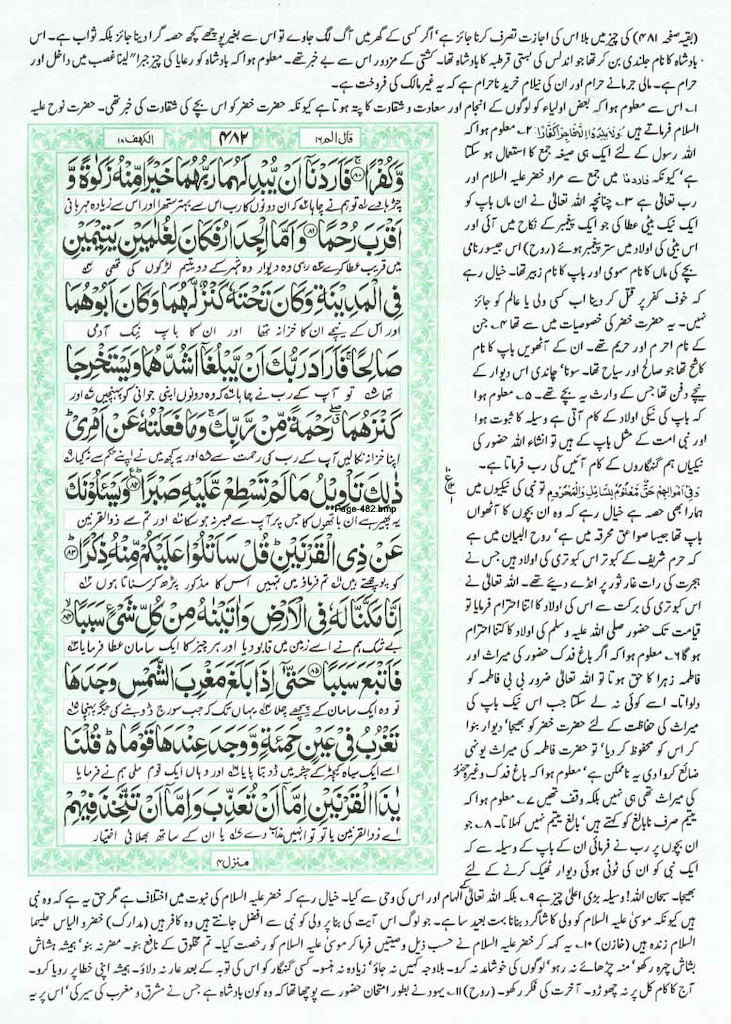 (بقیہ صفحہ ۴۸۱) کی چیز میں بلا اس کی اجازت تصرف کرنا جائز ہے' اگر کسی کے گھر میں آگ لگ جاوے تو اس سے بغیر پوچھے کچھ حصہ گرا دینا جائز بلکہ ثواب ہے۔ اس
بادشاہ کا نام جلندی بن کر تھا جو اندلس کی بستی قرطبہ کا بادشاہ تھا۔ کشتی کے مزدور اس سے بے خبر تھے۔ معلوم ہوا کہ بادشاہ کو رعایا کی چیز جبرا" لینا غصب میں داخل اور
حرام ہے۔ مالی جرمانے حرام اور ان کا نیلام خرید نا حرام ہے کہ یہ غیر مالک کی فروخت ہے۔
۱۔ اس سے معلوم ہوا کہ بعض اولیاء کو لوگوں کے انجام اور سعادت و شقاوت کا پتہ ہوتا ہے کیونکہ حضرت خضر کو اس بچے کی شقاوت کی خبر تھی۔ حضرت نوح علیہ
السلام فرماتے ہیں وَلَا يَلِدُوا إِلَّا فَاجِرًا كَفَّارًا ۲۔ معلوم ہوا کہ
اللہ رسول کے لئے ایک ہی صیغہ جمع کا استعمال ہو سکتا
ہے' کیونکہ فاردنا میں جمع سے مراد خضر علیہ السلام اور
رب تعالیٰ ہے ۳۔ چنانچہ اللہ تعالیٰ نے ان ماں باپ کو
ایک نیک بیٹی عطا کی جو ایک پیغمبر کے نکاح میں آئی اور
اس بیٹی کی اولاد میں ستر پیغمبر ہوئے (روح) اس جیسور نامی
بچے کی ماں کا نام سہوی اور باپ کا نام زبیر تھا۔ خیال رہے
کہ خوف کفر پر قتل کر دینا اب کسی ولی یا عالم کو جائز
نہیں۔ یہ حضرت خضر کی خصوصیات میں سے تھا ۴۔ جن
کے نام احرم اور حریم تھے۔ ان کے آٹھویں باپ کا نام
کاشح تھا جو صالح اور سیاح تھا۔ سونا' چاندی اس دیوار کے
نیچے دفن تھا جس کے وارث یہ بچے تھے۔ ۵۔ معلوم ہوا
کہ باپ کی نیکی اولاد کے کام آتی ہے وسیلہ کا ثبوت ہوا
اور نبی امت کے مثل باپ کے ہیں تو انشاء اللہ حضور کی
نیکیاں ہم گنہگاروں کے کام آئیں گی رب فرماتا ہے۔
وَفِي أَمْوَالِهِمْ حَقٌّ مَّعْلُومٌ لِّلسَّائِلِ وَالْمَحْرُومِ تو نبی کی نیکیوں میں
ہمارا بھی حصہ ہے خیال رہے کہ وہ ان بچوں کا آٹھواں
باپ تھا جیسا صواعق محرقہ میں ہے' روح البیان میں ہے
کہ حرم شریف کے کبوتر اس کبوتری کی اولاد ہیں جس نے
ہجرت کی رات غار ثور پر انڈے دیئے تھے۔ اللہ تعالیٰ نے
اس کبوتری کی برکت سے اس کی اولاد کا اتنا احترام فرمایا تو
قیامت تک حضور صلی اللہ علیہ وسلم کی اولاد کا کتنا احترام
ہو گا ۶۔ معلوم ہوا کہ اگر باغ فدک حضور کی میراث اور
فاطمہ زہرا کا حق ہوتا تو اللہ تعالیٰ ضرور بی بی فاطمہ کو
دلواتا۔ اسے کوئی نہ لے سکتا جب اس نیک باپ کی
میراث کی حفاظت کے لئے حضرت خضر کو بھیجا' دیوار بنوا
کر اس کو محفوظ کر دیا' تو حضرت فاطمہ کی میراث یونہی
ضائع کروا دی یہ ناممکن ہے' معلوم ہوا کہ باغ فدک وغیرہ حضور
کی میراث تھی ہی نہیں بلکہ وقف تھیں ۷۔ معلوم ہوا کہ
یتیم صرف نابالغ کو کہتے ہیں' بالغ یتیم نہیں کہلاتا۔ ۸۔ جو
ان بچوں پر رب نے فرمائی ان کے باپ کے وسیلہ سے کہ
ایک نبی کو ان کی ٹوٹی ہوئی دیوار ٹھیک کرنے کے لئے
قال الم ۱۶
۴۸۲
الکھف ۱۸
وَّكُفْرًا ۝۸۰ فَاَرَدْنَاۤ اَنْ يُّبْدِلَهُمَا رَبُّهُمَا خَيْرًا مِّنْهُ زَكٰوةً وَّ
چڑھا دے تو ہم نے چاہا کہ ان دونوں کا رب اس سے بہتر ستھرا اور اس سے زیادہ مہربانی
اَقْرَبَ رُحْمًا ۝۸۱ وَاَمَّا الْجِدَارُ فَكَانَ لِغُلٰمَيْنِ يَتِيْمَيْنِ
میں قریب عطا کرے رہی وہ دیوار وہ شہر کے دو یتیم لڑکوں کی تھی
فِى الْمَدِيْنَةِ وَكَانَ تَحْتَهٗ كَنْزٌ لَّهُمَا وَكَانَ اَبُوْهُمَا
اور اس کے نیچے ان کا خزانہ تھا اور ان کا باپ نیک آدمی
صَالِحًا ۚ فَاَرَادَ رَبُّكَ اَنْ يَّبْلُغَاۤ اَشُدَّهُمَا وَيَسْتَخْرِجَا
تھا تو آپ کے رب نے چاہا کہ وہ دونوں اپنی جوانی کو پہنچیں اور
كَنْزَهُمَا ۖ رَحْمَةً مِّنْ رَّبِّكَ ۚ وَمَا فَعَلْتُهٗ عَنْ اَمْرِىْ ؕ
اپنا خزانہ نکالیں آپ کے رب کی رحمت سے اور یہ کچھ میں نے اپنے حکم سے نہ کیا
ذٰلِكَ تَاْوِيْلُ مَا لَمْ تَسْطِعْ عَّلَيْهِ صَبْرًا ۝۸۲ وَيَسْـَٔلُوْنَكَ
Page-482.bmp
یہ پھیر ہے ان باتوں کا جس پر آپ سے صبر نہ ہو سکا اور تم سے ذوالقرنین
عَنْ ذِى الْقَرْنَيْنِ ؕ قُلْ سَاَتْلُوْا عَلَيْكُمْ مِّنْهُ ذِكْرًا ۝۸۳
کو پوچھتے ہیں تم فرماؤ میں تمہیں اس کا مذکور پڑھ کر سناتا ہوں
اِنَّا مَكَّنَّا لَهٗ فِى الْاَرْضِ وَاٰتَيْنٰهُ مِنْ كُلِّ شَىْءٍ سَبَبًا ۝۸۴
بے شک ہم نے اسے زمین میں قابو دیا اور ہر چیز کا ایک سامان عطا فرمایا
فَاَتْبَعَ سَبَبًا ۝۸۵ حَتّٰۤى اِذَا بَلَغَ مَغْرِبَ الشَّمْسِ وَجَدَهَا
تو وہ ایک سامان کے پیچھے چلا یہاں تک کہ جب سورج ڈوبنے کی جگہ پہنچا
تَغْرُبُ فِىْ عَيْنٍ حَمِئَةٍ وَّوَجَدَ عِنْدَهَا قَوْمًا ؕ قُلْنَا
اسے ایک سیاہ کیچڑ کے چشمہ میں ڈوبتا پایا اور وہاں ایک قوم ملی ہم نے فرمایا
يٰذَا الْقَرْنَيْنِ اِمَّاۤ اَنْ تُعَذِّبَ وَاِمَّاۤ اَنْ تَتَّخِذَ فِيْهِمْ
اے ذوالقرنین یا تو تو انہیں عذاب دے یا ان کے ساتھ بھلائی اختیار
منزل ۴
بھیجا۔ سبحان اللہ! وسیلہ بڑی اعلیٰ چیز ہے ۹۔ بلکہ اللہ تعالیٰ کے الہام اور اس کی وحی سے کیا۔ خیال رہے کہ خضر علیہ السلام کی نبوت میں اختلاف ہے مگر حق یہ ہے کہ وہ نبی
ہیں کیونکہ موسیٰ علیہ السلام کو ولی کا شاگرد بنانا بہت بعید سا ہے۔ جو لوگ اس آیت کی بنا پر ولی کو نبی سے افضل جانتے ہیں وہ کافر ہیں (مدارک) خضر و الیاس علیہما
السلام زندہ ہیں (خازن) ۱۰۔ یہ کہہ کر خضر علیہ السلام نے حسب ذیل وصیتیں فرما کر موسیٰ علیہ السلام کو رخصت کیا۔ تم مخلوق کے نافع بنو۔ مضر نہ بنو' ہمیشہ ہشاش
بشاش چہرہ رکھو' منہ چڑھائے نہ رہو' لوگوں کی خوشامد نہ کرو۔ بلاوجہ کہیں نہ جاؤ' زیادہ نہ ہنسو۔ کسی گنہگار کو اس کی توبہ کے بعد عار نہ دلاؤ۔ ہمیشہ اپنی خطا پر رویا کرو۔
آج کا کام کل پر نہ چھوڑو۔ آخرت کی فکر رکھو۔ (روح) ۱۱۔ یہود نے بطور امتحان حضور سے پوچھا تھا کہ وہ کون بادشاہ ہے جس نے مشرق و مغرب کی سیر کی' اس پر یہ